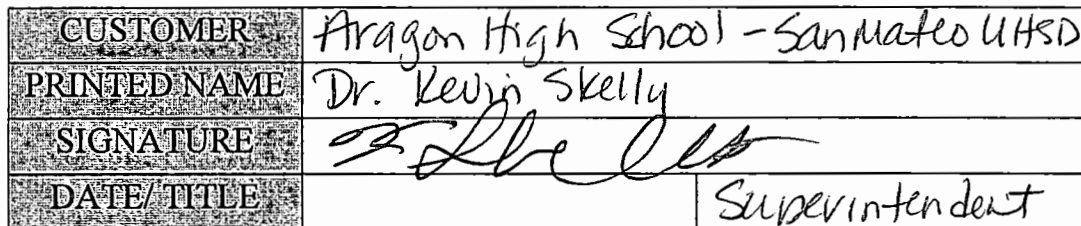 CUSTOMER Aragon High School - San Mateo UHSD
PRINTED NAME Dr. Kevin Skelly
SIGNATURE
DATE/ TITLE Superintendent